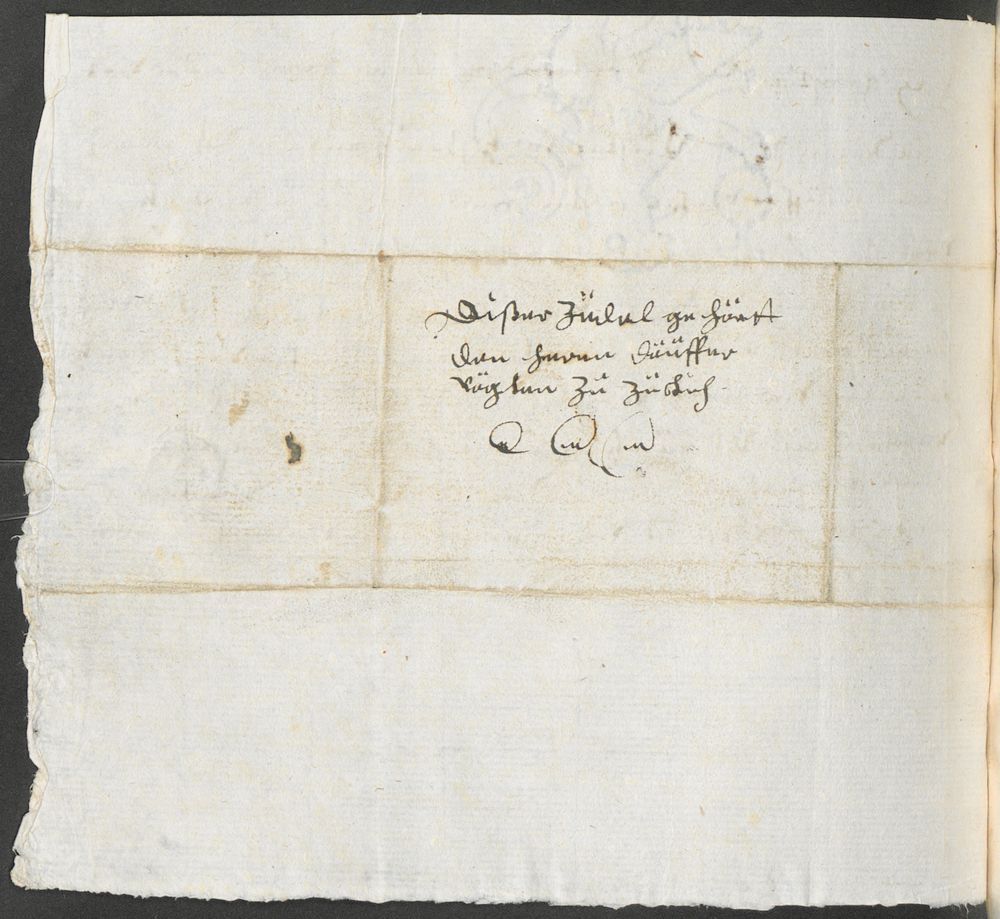 Dißer Zädel gehört
den herenn Däüffer
vögten Zů Zürich